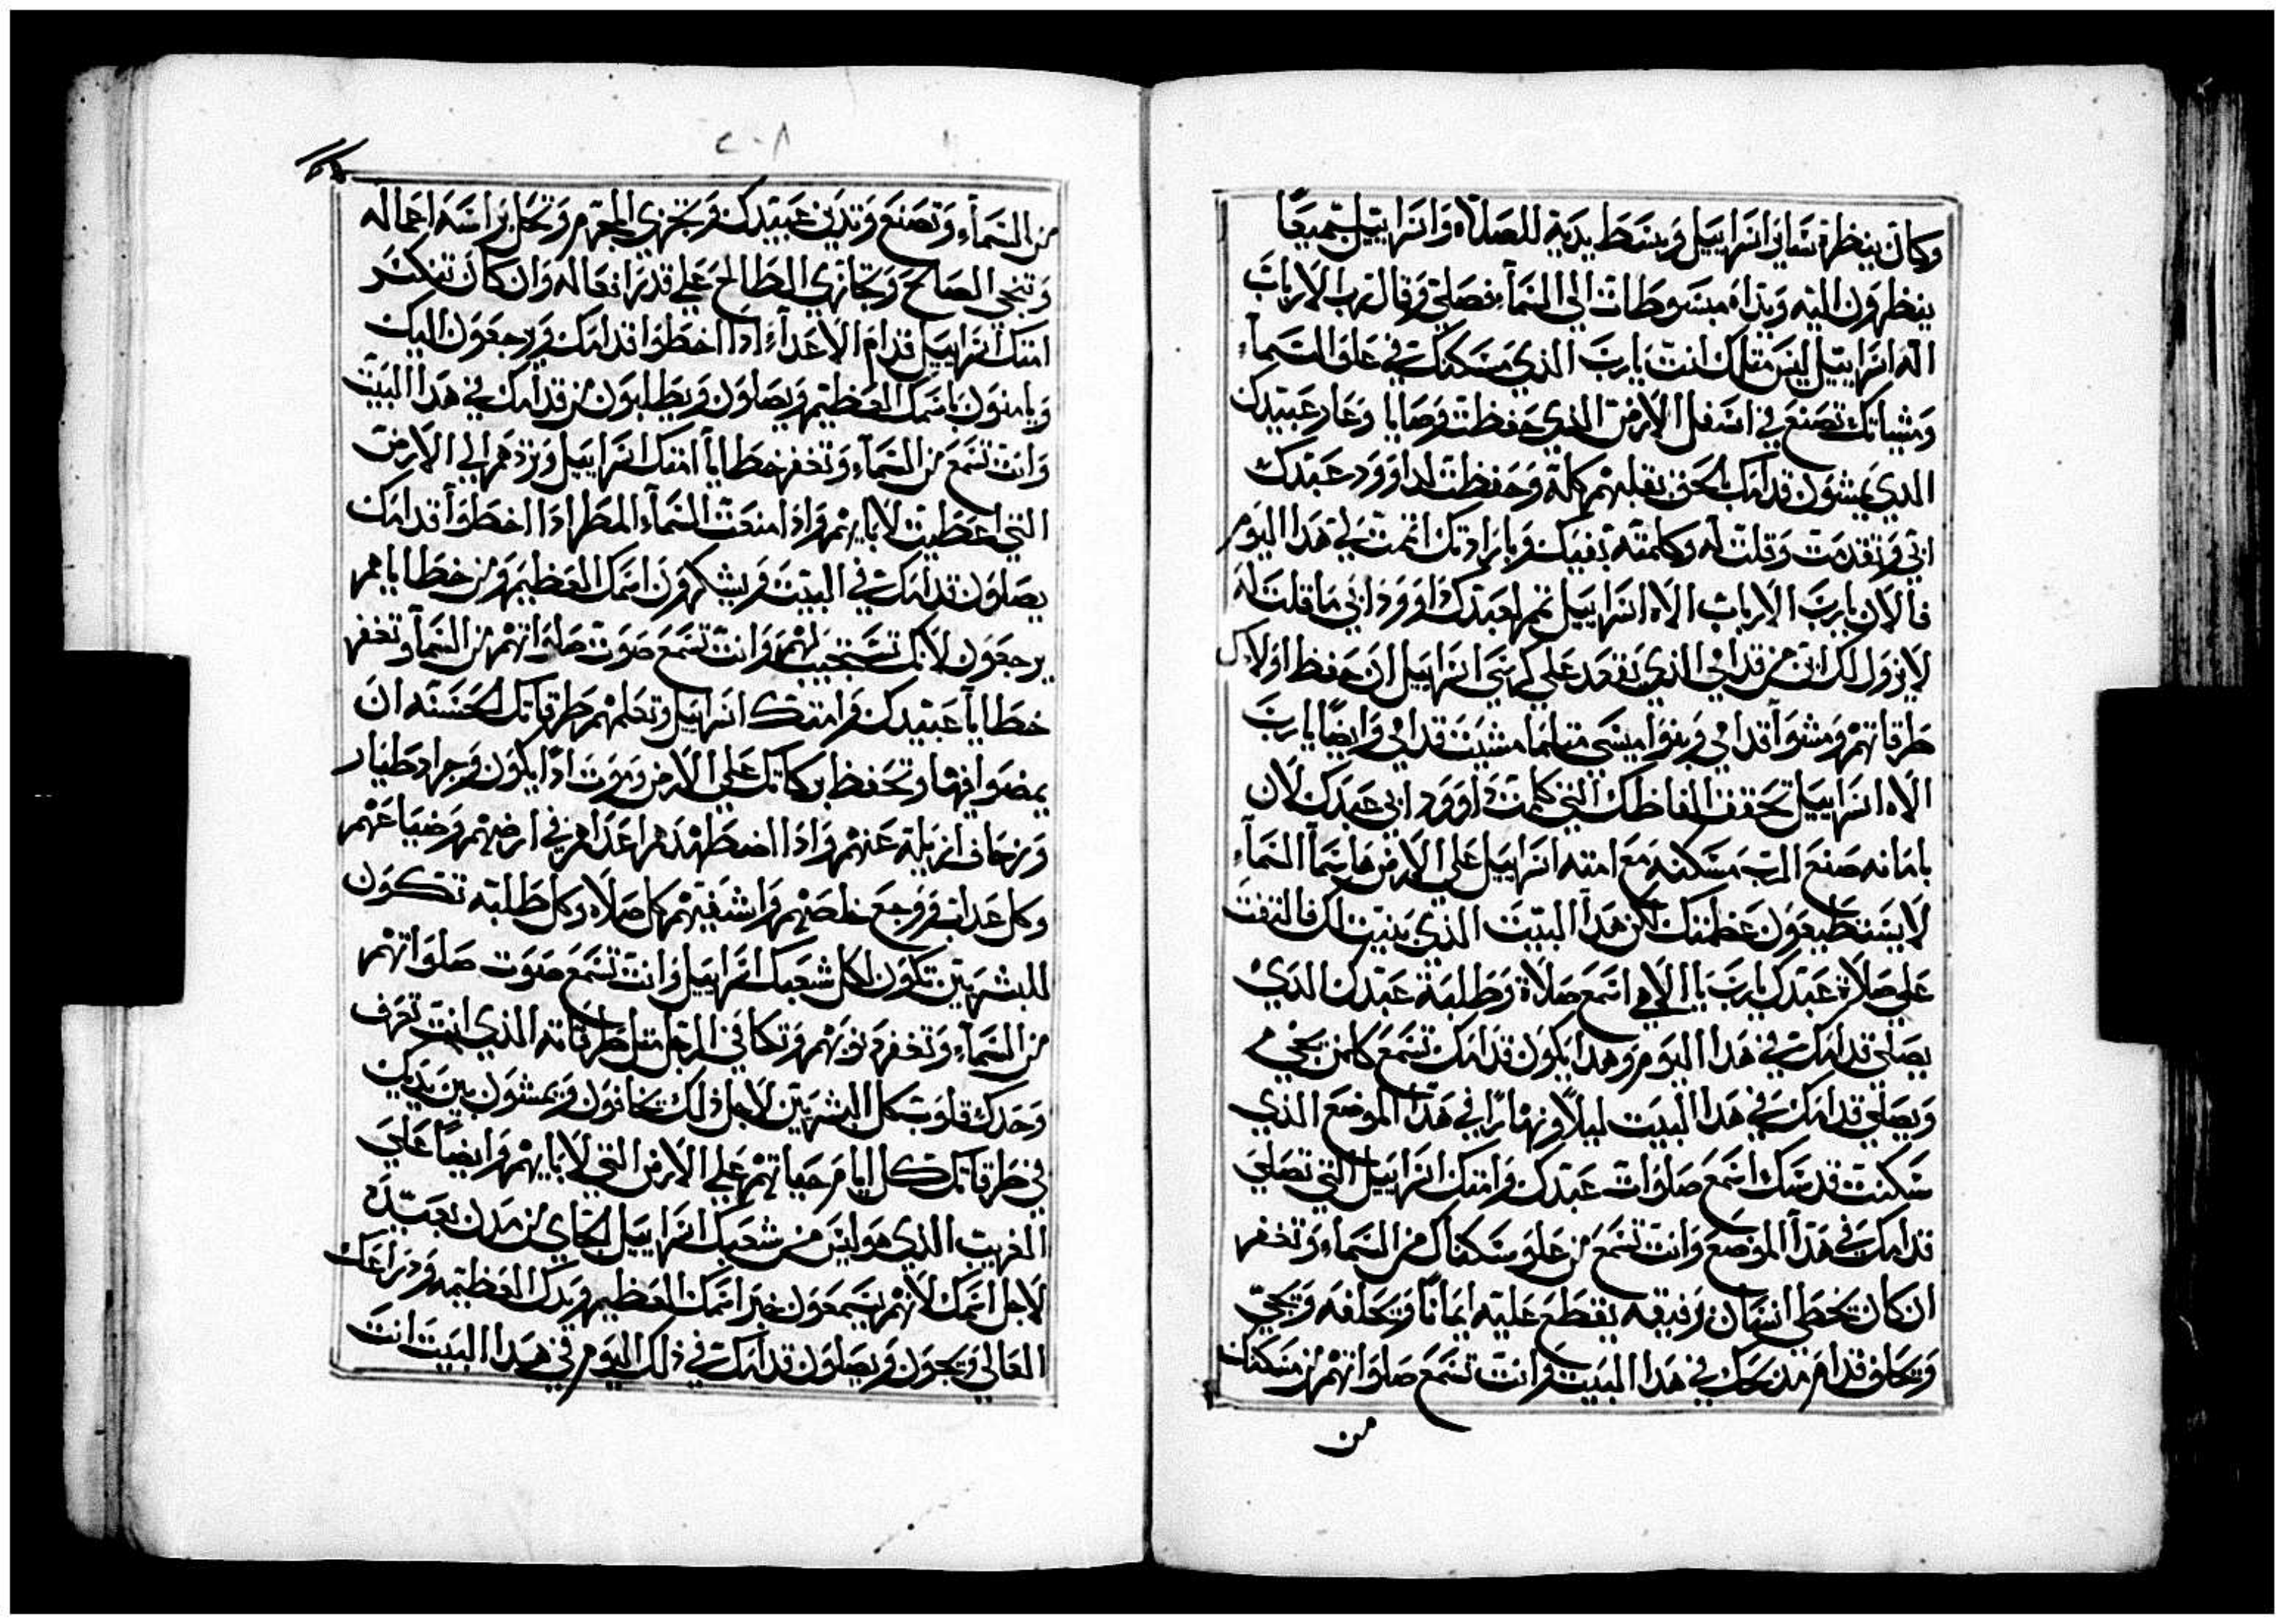 وكان ينظره بنى اسراييل وبسط يديه للصلاة واسراييل جميعًا
ينظرون اليه ويداه مبسوطات الى السمآء فصلى وقال رب الارباب
اله اسراييل ليس مثلك انت يا رب الذي مسكنك في علو السمآء
ومشياتك تصنع في اسفل الارض الذي حفظت وصايا عبيدك
الدي يمشون قدامك بالحق بقلبهم كله وحفظت لداوود عبدك
ابي وتقدمت وقلت له وكلمته بفيك وبارادتك اتممت لي هدا اليوم
فالان يا رب الارباب الاه اسراييل تمم لعبدك داوود ابي ما قلت له
لا يزول لك انسان من قدامي الذي يقعد على كرسي اسراييل ان حفظ اولادك
طرقاتهم ومشوا قدامي وبنواميسى مثلما مشيت قدامي وايضًا يا رب
الاه اسراييل تحقق الفاظك التي كلمت داوود ابي عبدك لان
بامانه صنع الرب مسكنه مع امته اسراييل على الارض هل سمآ السمآء
لا يستطيعون عظمتك لكن هدا البيت الذي بنيت لك فالتفت
على صلاة عبدك يا رب يا الاهي اسمع صلاة وطلبة عبدك الدي
يصلى قدامك في هدا اليوم وهدا يكون قدامك تسمع كلمن يجي
ويصلي قدامك في هدا البيت ليلاً ونهارًا في هدا الموضع الذي
سكنت قدسك اسمع صلوات عبدك وامتك اسراييل التي تصلى
قدامك في هدا الموضع وانت تسمع من علو سكناك من السمآء وتغفر
ان كان يخطي انسان برفيقه يقطع عليه ايمانًا ويحلفه ويجى
ويحلف قدام مدبحك في هدا البيت وانت تسمع صلواتهم من مسكنك
من
٢٠٨
من السمآء وتصنع وتدين عبيدك وتجزي المجرم وتحل براسه اعماله
وتنجي الصالح وتجازي الطالح على قدر افعاله وان كان تنكسر
امتك اسراييل قدام الاعدآء ادا اخطوا قدامك ويرجعون اليك
ويامنون باسمك العظيم ويصلون ويطلبون من قدامك في هدا البيت
وانت تسمع من السمآء وتغفر خطايا امتك اسراييل وتردهم الى الارض
التي اعطيت لابايهم واذا امنعت السمآء المطر ادا اخطوا قدامك
يصلون قدامك في البيت ويشكرون اسمك العظيم ومن خطاياهم
يرجعون لانك تستجيب لهم وانت تسمع صوت صلواتهم من السمآ وتغفر
خطايآ عبيدك وامتك اسراييل وتعلمهم طرقاتك الحسنه ان
يمضوا فيها وتحفظ بركاتك على الارض وموت ادا يكون وجراد طيار
وزحاف ازيله عنهم واذا اضطهدهم اعداهم في ارضهم وضياعهم
وكل عداب ووجع خلصهم واشفيهم كل صلاه وكل طلبه تكون
للبشريين تكون لكل شعبك اسراييل وانت تسمع صوت صلواتهم
من السمآء وتغفر دنوبهم وتكافي الرجل مثل طرقاته الذي انت تعرف
وحدك قلوب كل البشريين لاجل ذلك يخافون ويمشون بين يديك
في طرقاتك كل ايام حياتهم على الارض التي لابايهم وايضًا على
الغريب الذي هو ليس من شعبك اسراييل الجاي من مدن بعيده
لاجل اسمك لانهم يسمعون خبر اسمك العظيم ويدك العظيمه ودراعك
العالي ويجون ويصلون قدامك في ذلك اليوم في هدا البيت انت